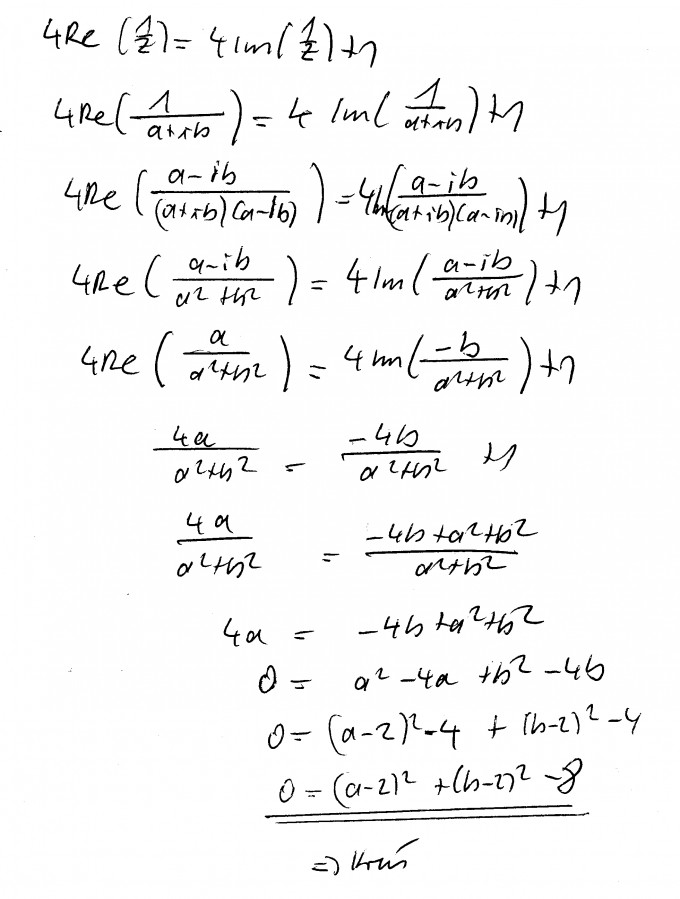 4Re (1/z) = 4 Im (1/z) + 1
4Re (1/(a+ib)) = 4 Im (1/(a+ib)) + 1
4Re ((a-ib)/((a+ib)(a-ib))) = 4Im ((a-ib)/((a+ib)(a-ib))) + 1
4Re ((a-ib)/(a²+b²)) = 4Im ((a-ib)/(a²+b²)) + 1
4Re (a/(a²+b²)) = 4Im (-b/(a²+b²)) + 1
4a/(a²+b²) = -4b/(a²+b²) + 1
4a/(a²+b²) = (-4b+a²+b²)/(a²+b²)
4a = -4b+a²+b²
0 = a²-4a+b²-4b
0 = (a-2)²-4 + (b-2)²-4
0 = (a-2)² + (b-2)² - 8
=>